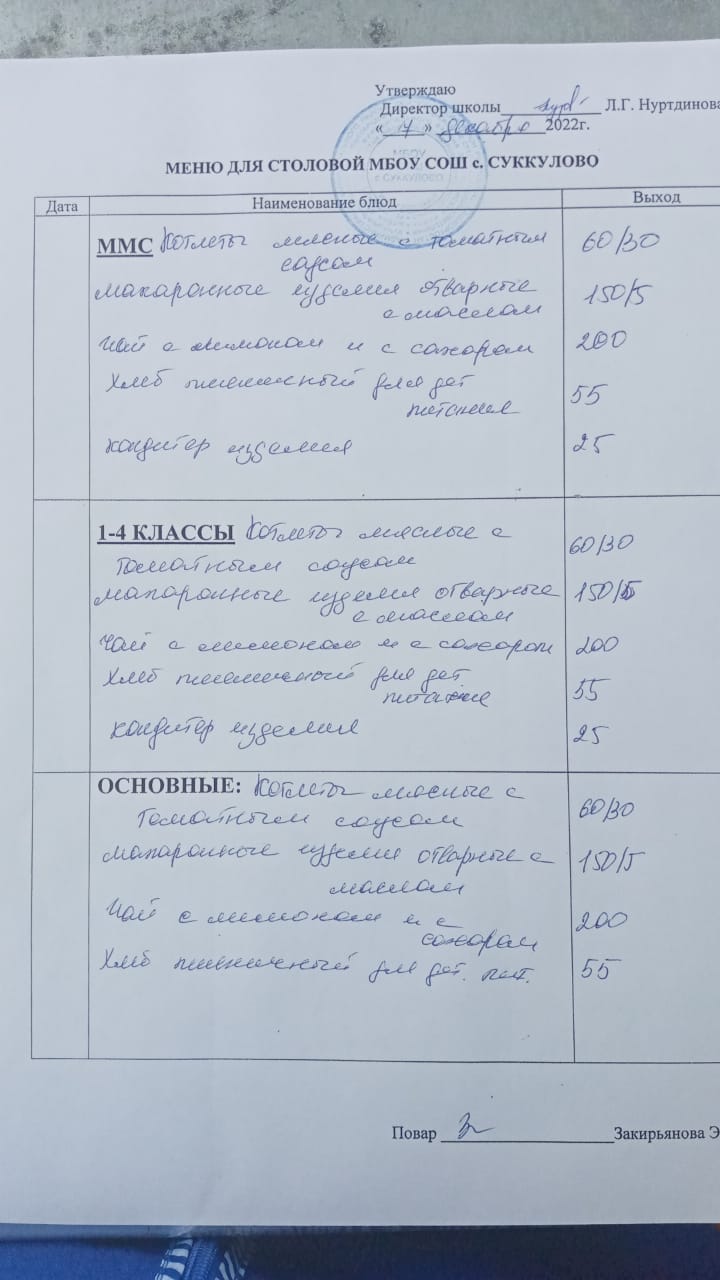 Утверждаю
Директор школы Л.Г. Нуртдинова
« 7 » декабря 2022г.
МБОУ
с СУККУЛОВО
МЕНЮ ДЛЯ СТОЛОВОЙ МБОУ СОШ с. СУККУЛОВО
Дата Наименование блюд Выход
ММС Котлеты мясные с томатным 60/30
соусом
макаронные изделия отварные 150/5
с маслом
Чай с лимоном и с сахаром 200
Хлеб пшеничный для дет 55
питания
кондитер изделия 25
1-4 КЛАССЫ Котлеты мясные с 60/30
томатным соусом
макаронные изделия отварные 150/5
с маслом
Чай с лимоном и с сахаром 200
Хлеб пшеничный для дет 55
питание
кондитер изделия 25
ОСНОВНЫЕ: Котлеты мясные с 60/30
томатным соусом
макаронные изделия отварные с 150/5
маслом
Чай с лимоном и с 200
сахаром
Хлеб пшеничный для дет. пит. 55
Повар Закирьянова Э